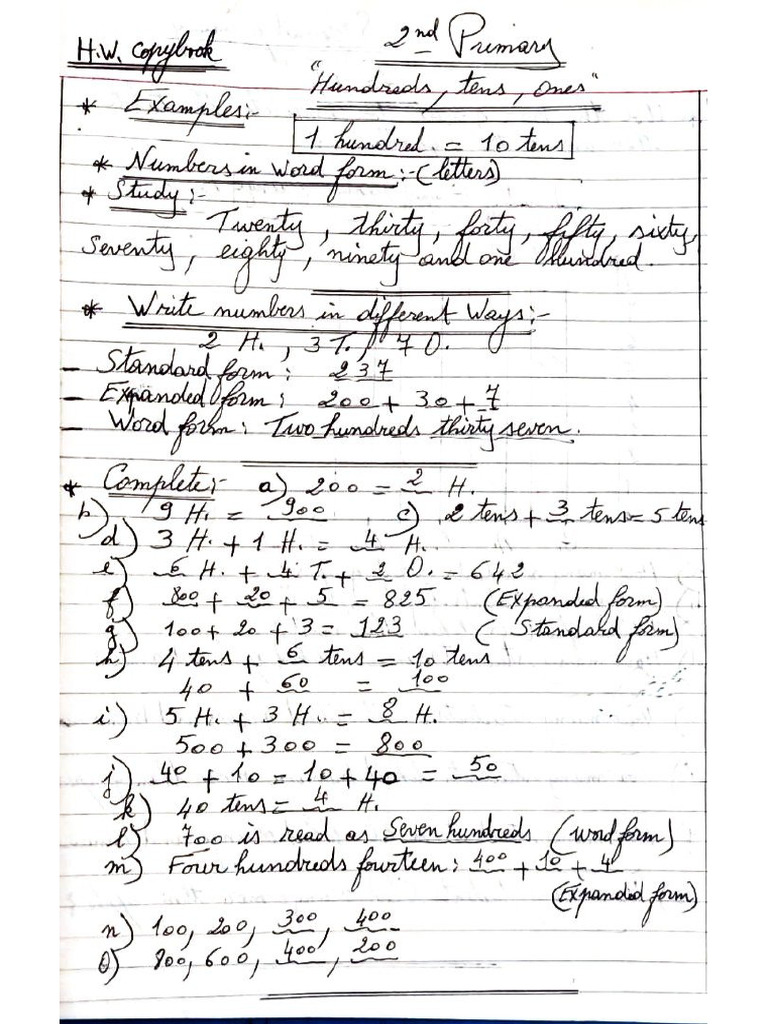 H.W. Copybook
2nd Primary
"Hundreds, tens, ones"
* Examples:-
1 hundred = 10 tens
* Numbers in Word form:-(letters)
* Study:-
Twenty, thirty, forty, fifty, sixty,
Seventy, eighty, ninety and one hundred.
* Write numbers in different Ways:-
2 H., 3 T., 7 O.
- Standard form: 237
- Expanded form: 200 + 30 + 7
- Word form: Two hundreds thirty seven.
* Complete:- a) 200 = 2 H.
b) 9 H. = 900 c) 2 tens + 3 tens = 5 tens
d) 3 H. + 1 H. = 4 H.
e) 6 H. + 4 T. + 2 O. = 642
f) 800 + 20 + 5 = 825 (Expanded form)
g) 100 + 20 + 3 = 123 (Standard form)
h) 4 tens + 6 tens = 10 tens
40 + 60 = 100
i) 5 H. + 3 H. = 8 H.
500 + 300 = 800
j) 40 + 10 = 10 + 40 = 50
k) 40 tens = 4 H.
l) 700 is read as Seven hundreds (word form)
m) Four hundreds fourteen: 400 + 10 + 4
(Expanded form)
n) 100, 200, 300, 400
o) 800, 600, 400, 200